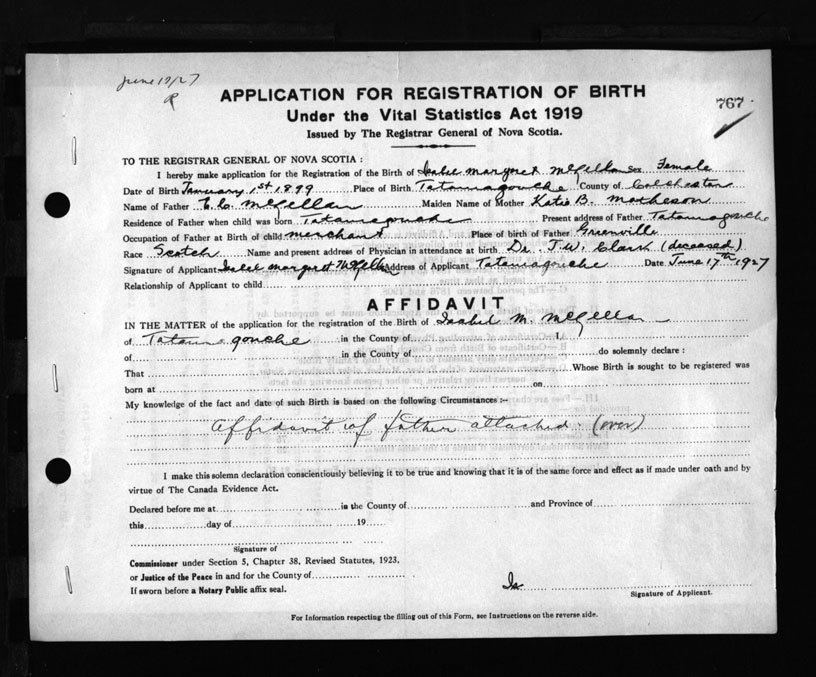 June 17/27
R
767
APPLICATION FOR REGISTRATION OF BIRTH
Under the Vital Statistics Act 1919
Issued by The Registrar General of Nova Scotia.
TO THE REGISTRAR GENERAL OF NOVA SCOTIA :
I hereby make application for the Registration of the Birth of Isabel Margret McLellan Sex Female
Date of Birth January 1st 1899 Place of Birth Tatamagouche County of Colchester
Name of Father McLellan Maiden Name of Mother Katie B. Matheson
Residence of Father when child was born Tatamagouche Present address of Father Tatamagouche
Occupation of Father at Birth of child merchant Place of birth of Father Greenville
Race Scotch Name and present address of Physician in attendance at birth Dr. T.W. Clark (deceased)
Signature of Applicant Isabel Margret McLellan Address of Applicant Tatamagouche Date June 17th 1927
Relationship of Applicant to child
AFFIDAVIT
IN THE MATTER of the application for the registration of the Birth of Isabel M. McLellan
of Tatamagouche in the County of I,
of in the County of do solemnly declare :
That Whose Birth is sought to be registered was
born at on
My knowledge of the fact and date of such Birth is based on the following Circumstances :-
Affidavit of father attached. (over)
I make this solemn declaration conscientiously believing it to be true and knowing that it is of the same force and effect as if made under oath and by
virtue of The Canada Evidence Act.
Declared before me at in the County of and Province of
this day of 19
Signature of
Commissioner under Section 5, Chapter 38, Revised Statutes, 1923.
or Justice of the Peace in and for the County of
If sworn before a Notary Public affix seal.
Is
Signature of Applicant.
For Information respecting the filling out of this Form, see Instructions on the reverse side.